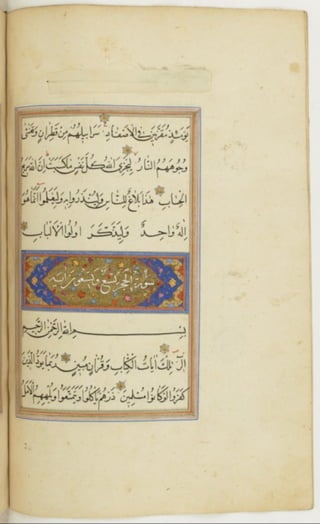 يَوْمَئِذٍ مُقَرَّنِينَ فِي الْأَصْفَادِ سَرَابِيلُهُمْ مِنْ قَطِرَانٍ وَتَغْشَى
وُجُوهَهُمُ النَّارُ لِيَجْزِيَ اللهُ كُلَّ نَفْسٍ مَا كَسَبَتْ إِنَّ اللهَ سَرِيعُ
الْحِسَابِ هَذَا بَلَاغٌ لِلنَّاسِ وَلِيُنْذَرُوا بِهِ وَلِيَعْلَمُوا أَنَّمَا هُوَ
إِلَهٌ وَاحِدٌ وَلِيَذَّكَّرَ أُولُوا الْأَلْبَابِ
سورة الحجر تسع وتسعون آية
بِسْمِ اللهِ الرَّحْمَنِ الرَّحِيمِ
الٓرٰ تِلْكَ آيَاتُ الْكِتَابِ وَقُرْآنٍ مُبِينٍ رُبَمَا يَوَدُّ الَّذِينَ
كَفَرُوا لَوْ كَانُوا مُسْلِمِينَ ذَرْهُمْ يَأْكُلُوا وَيَتَمَتَّعُوا وَيُلْهِهِمُ الْأَمَلُ